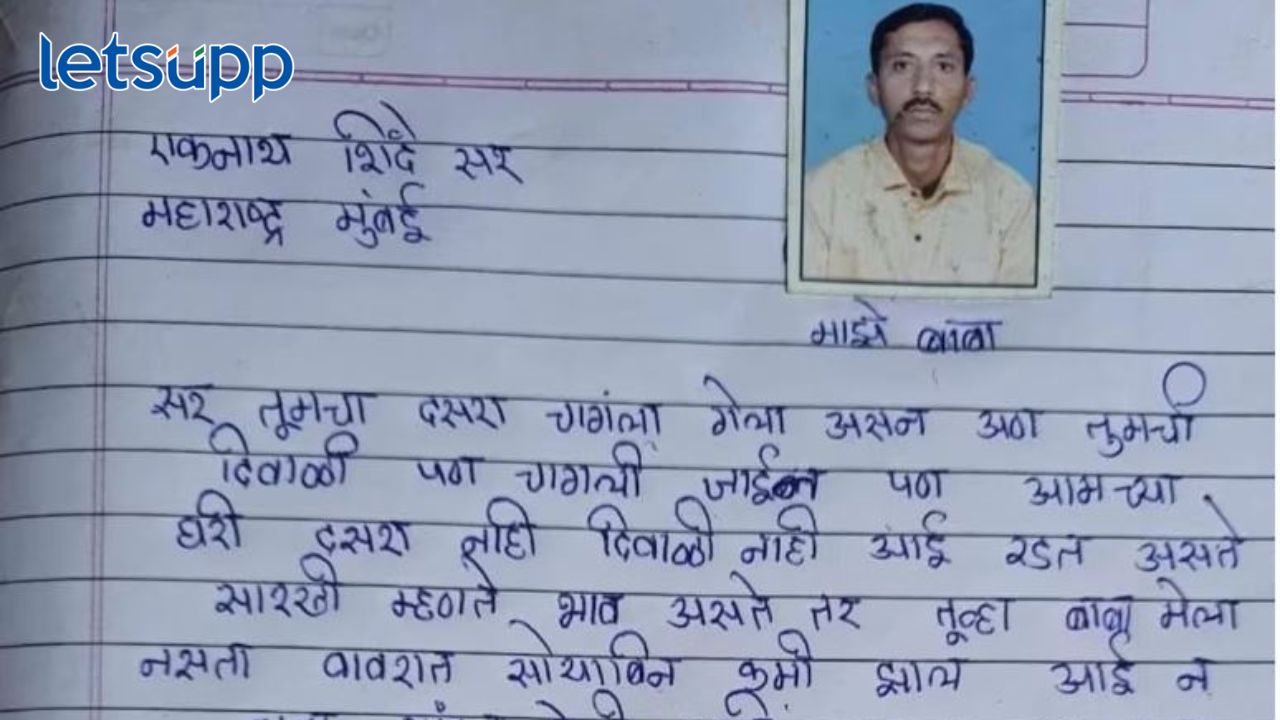 letsupp
एकनाथ शिंदे सर
महाराष्ट्र मुंबई
माझे बाबा
सर तूमचा दसरा चागंला गेला असन अण तुमची
दिवाळी पण चागली जाईन पण आमच्या
घरी दसरा नाही दिवाळी नाही आई रडत असते
सारखी म्हणते भाव असते तर तूव्हा बाबा मेला
नसता वावरात सोयाबिन कमी झाल आई न